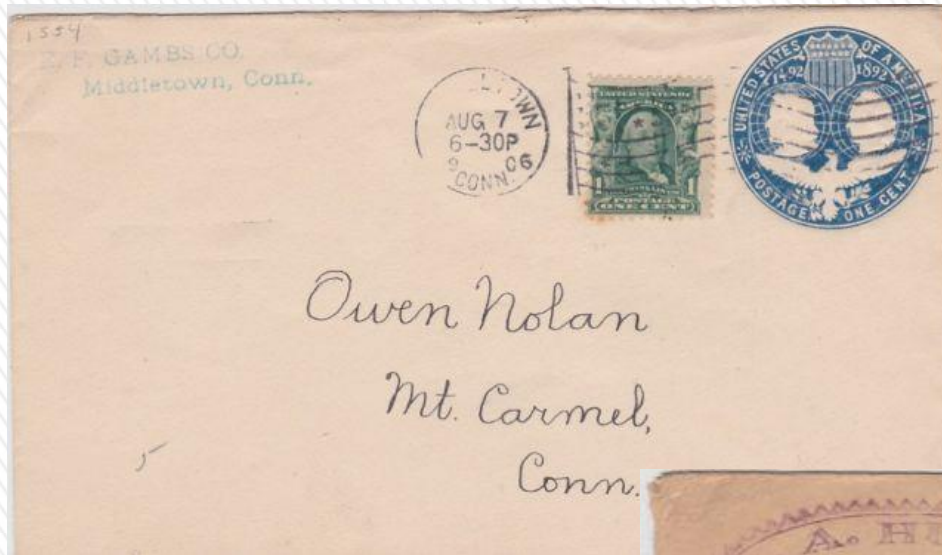 1554
E.F. GAMBS CO.
Middletown, Conn.
AUG 7
6-30P
06
CONN.
UNITED STATES OF AMERICA
1492 1892
POSTAGE ONE CENT.
1 1
POSTAGE
ONE CENT
Owen Nolan
Mt. Carmel,
Conn.